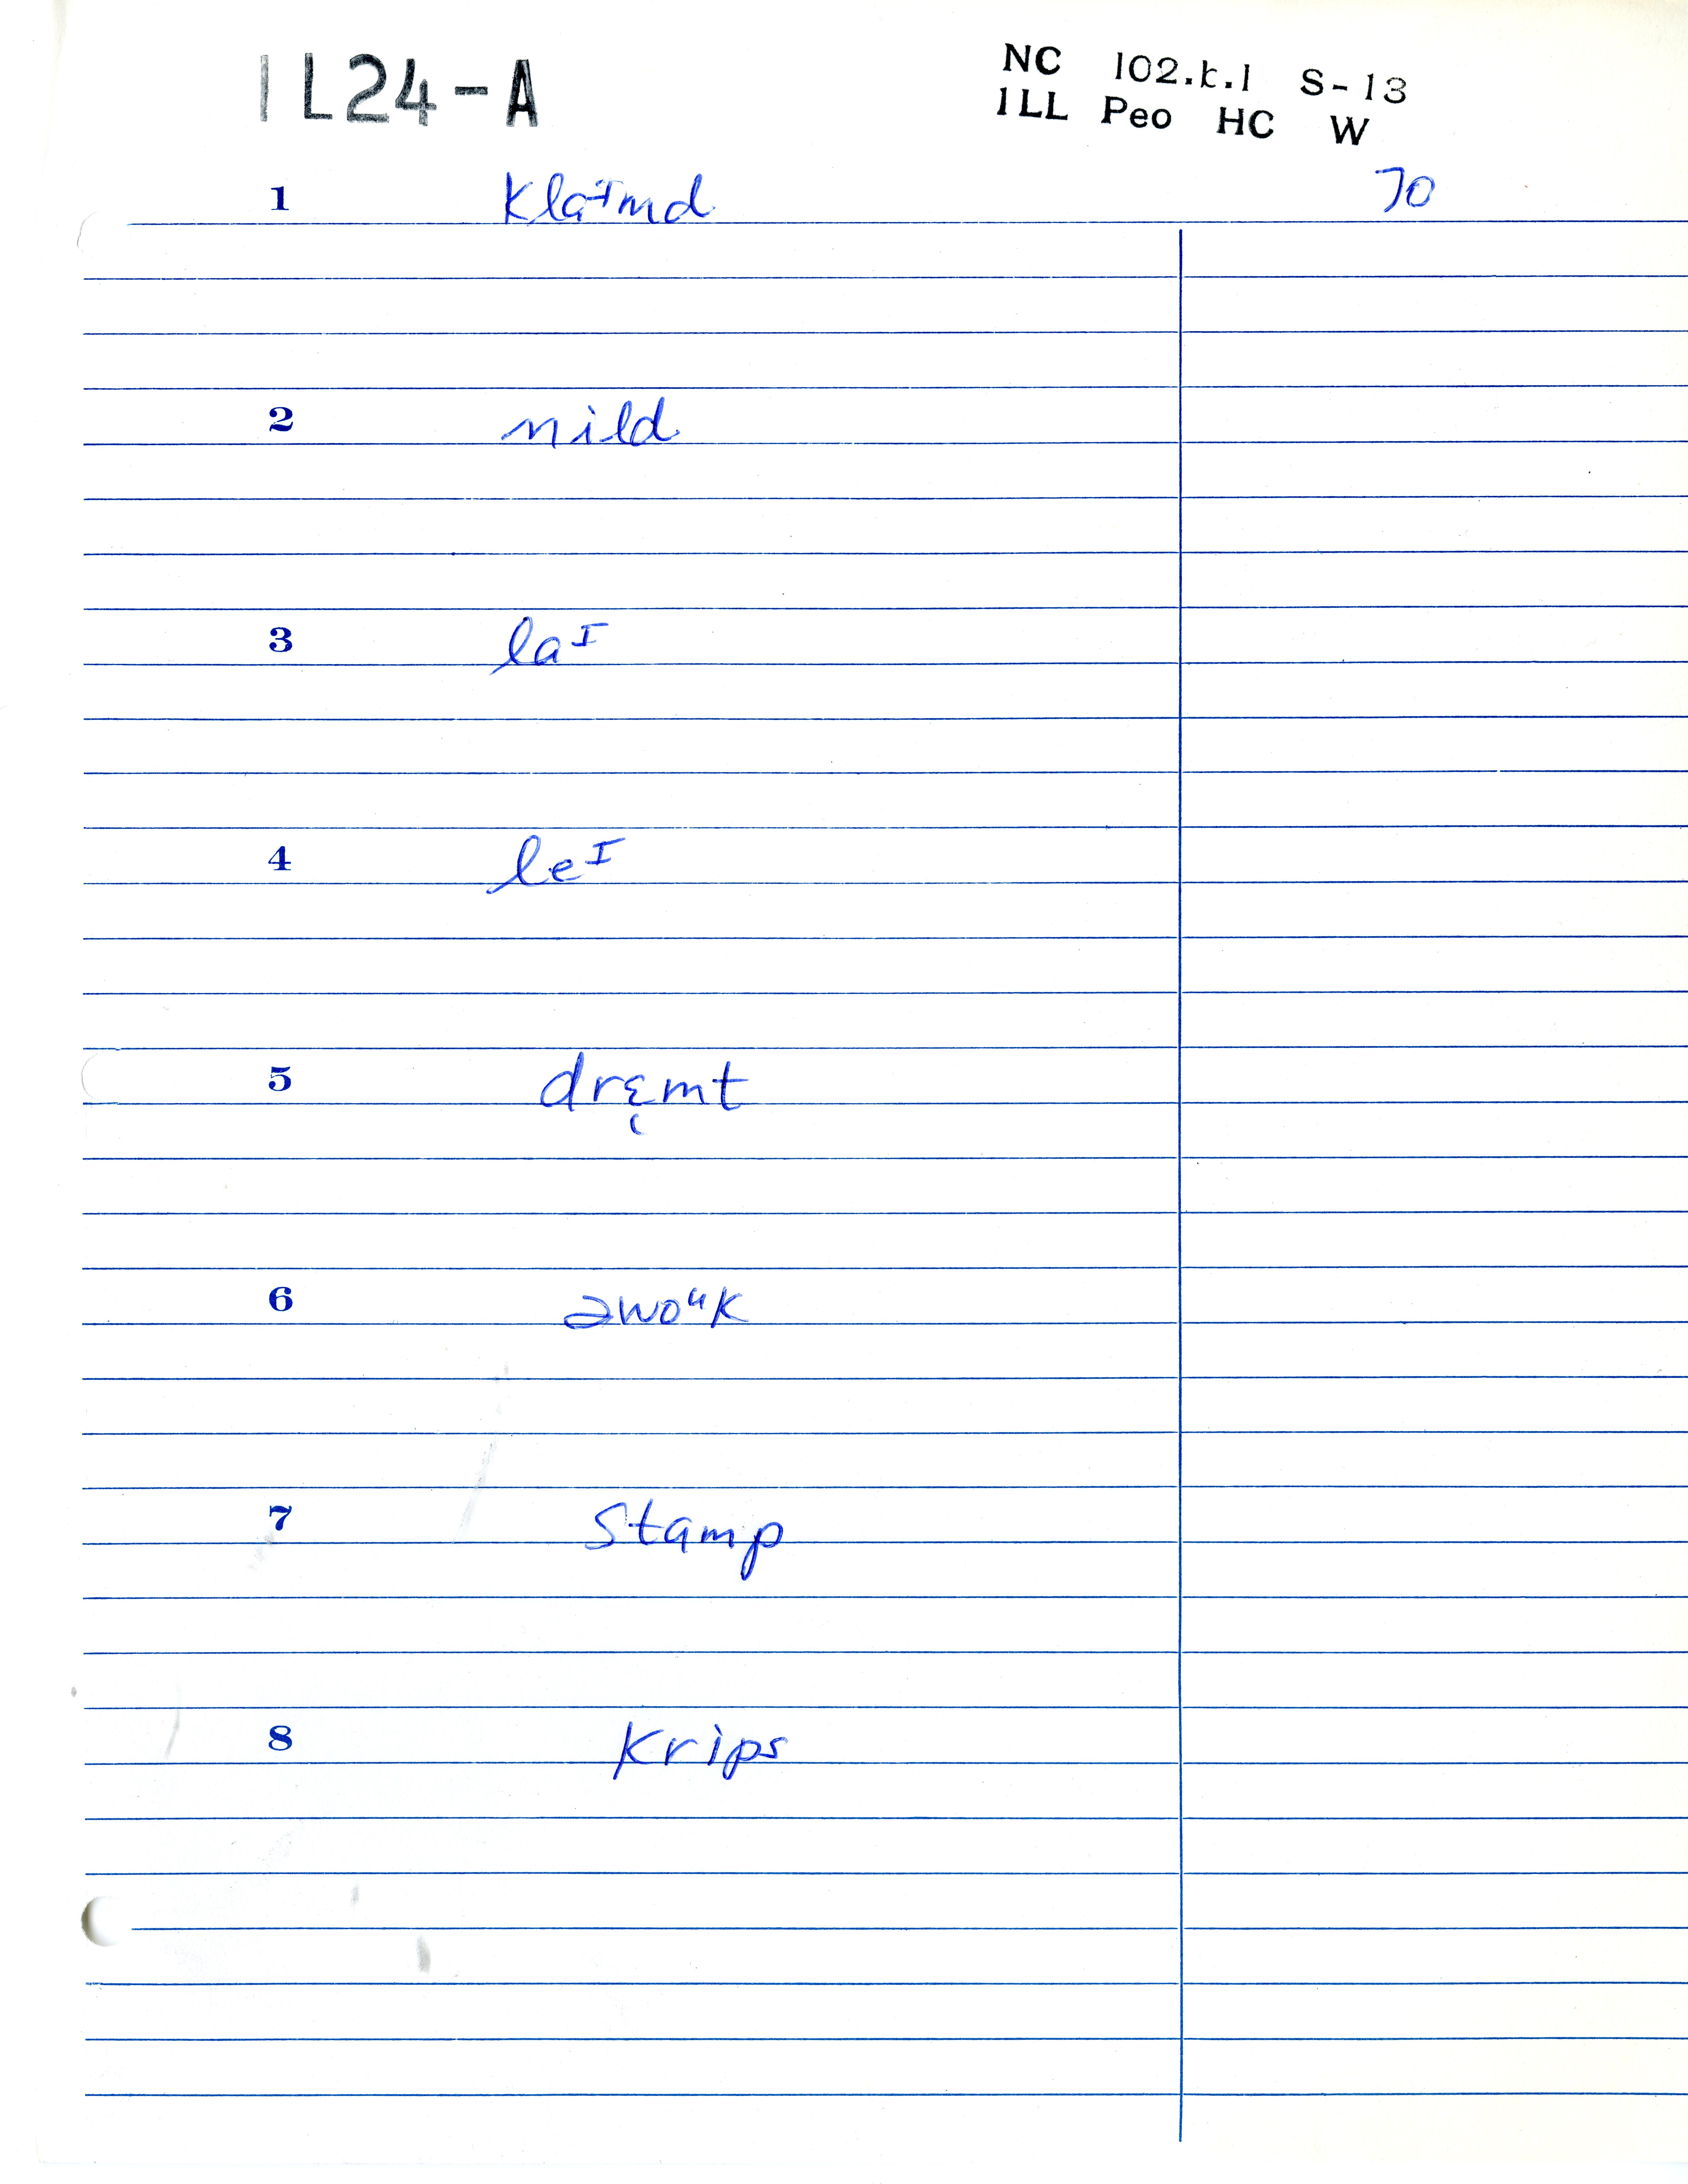 IL24-A
NC 102.k.1 S-13
ILL Peo HC W
70
1 klaᶦmd
2 nild
3 laᶦ
4 leᶦ
5 drɛ̨mt
6 əwoᵘk
7 stamp
8 krips